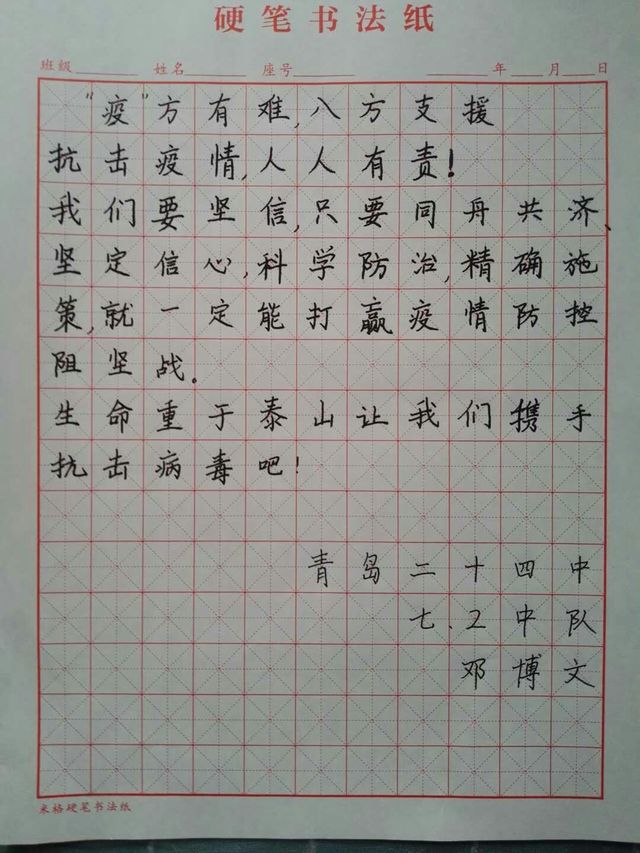 硬笔书法纸
班级 姓名 座号 年 月 日
"疫"方有难,八方支援
抗击疫情,人人有责!
我们要坚信,只要同舟共济、
坚定信心,科学防治,精确施
策,就一定能打赢疫情防控
阻坚战.
生命重于泰山让我们携手
抗击病毒吧!
青岛二十四中
七.2中队
邓博文
米格硬笔书法纸